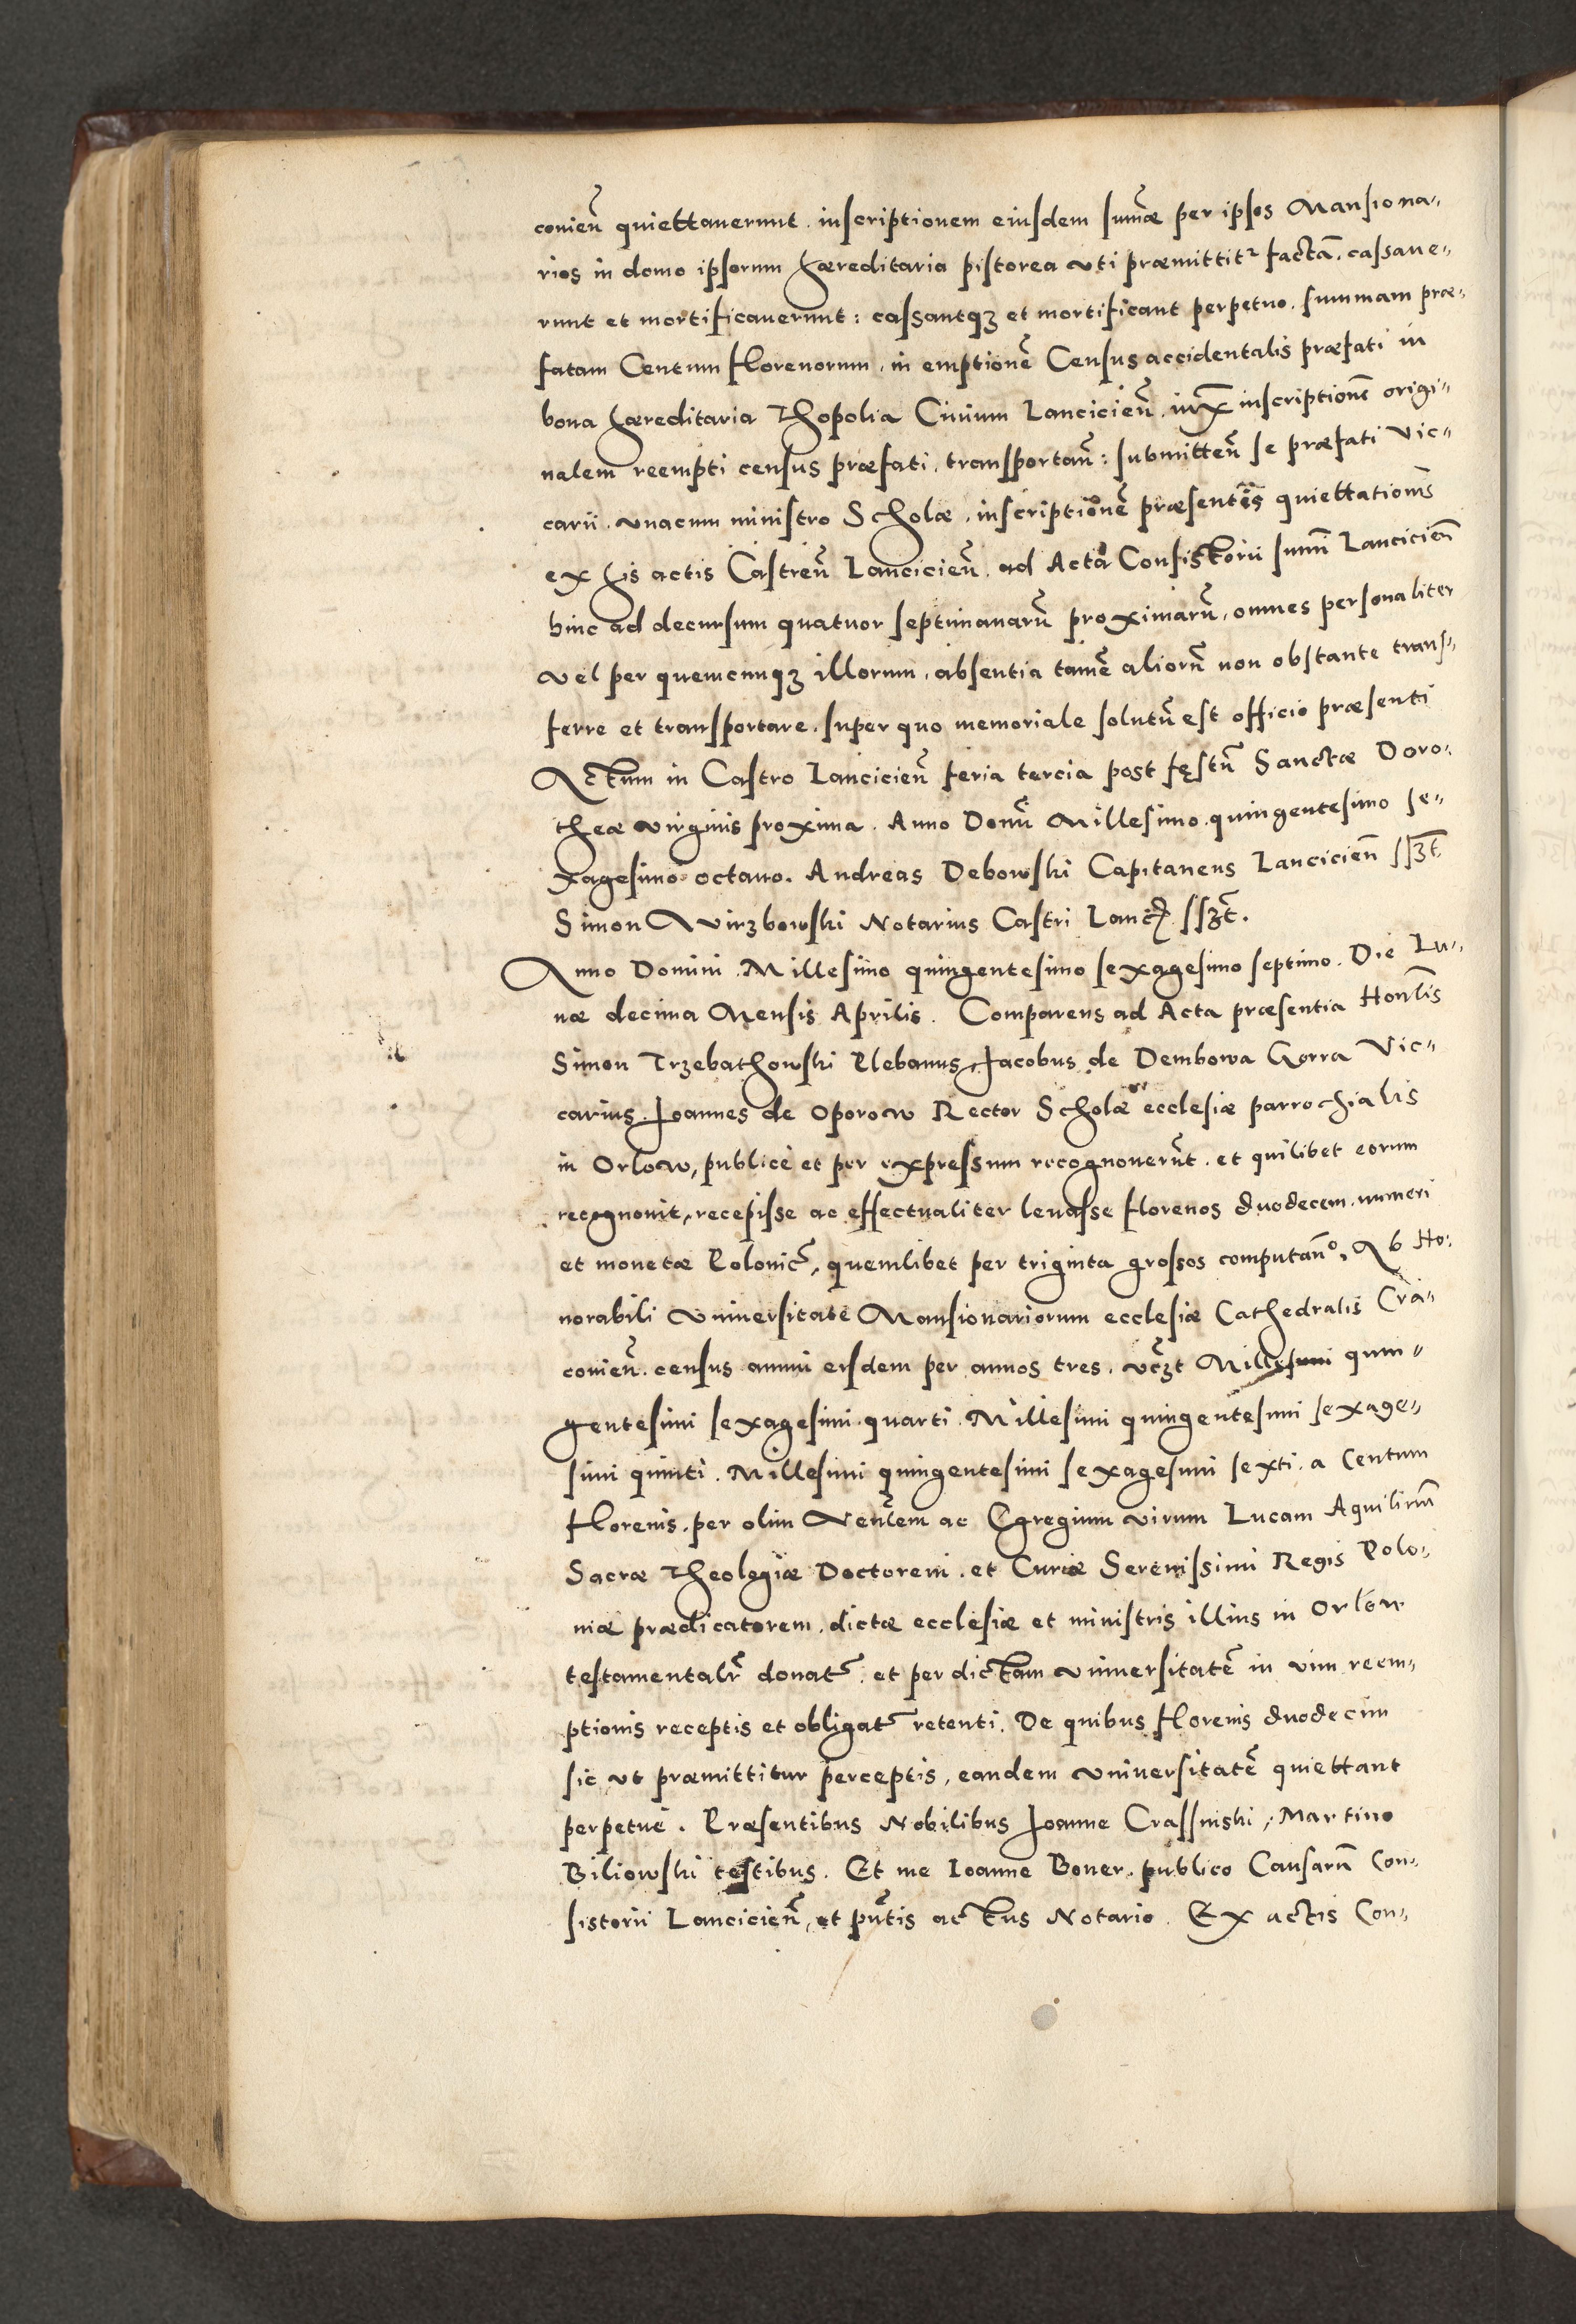 conień quiettauerunt. inscriptionem eiusdem sum̃æ per ipsos Mansiona„
rios in domo ipsorum hæreditaria pistorea vti præmittitr factã. cassaue„
runt et mortificauerunt: cassantqȝ et mortificant perpetuo. summam præ„
fatam Centum florenorum. in emptionẽ Census accidentalis præfati in
bona hæreditaria Thopolia Ciuium Lancicień. iuxta inscriptionẽ origi„
nalem reempti census præfati. transportań: submitteń se præfati Vic„
carii. vnacum ministro Scholæ. inscriptionẽ præsentẽs quiettationis
ex his actis Castreń Lancicień. ad Acta Consistorii sum̃i Lancicień
hinc ad decursum quatuor septimanarũ proximarũ, omnes personaliter
vel per quemcunqȝ illorum, absentia tamẽ aliorũ non obstante trans„
ferre et transportare. super quo memoriale solutũ est officio præsenti
Actum in Castro Lancicień feria tercia post fęstũ Sanctæ Doro„
theæ virginis proxima. Anno Domĩ Millesimo quingentesimo se„
xagesimo octauo. Andreas Debowski Capitaneus Lancicień ssȝt.
Simon Wirzbowski Notarius Castri Lanc̃ ssȝt.
Anno Domini Millesimo quingentesimo sexagesimo septimo. Die Lu„
næ decima Mensis Aprilis. Comparens ad Acta præsentia Honl̃is
Simon Trzebathowski Plebanus, Jacobus de Dembowa Gorra Vic„
carius. Joannes de Oporow Rector Scholæ ecclesiæ parrochialis
in Orlow, publicè et per expressum recognouerũt. et quilibet eorum
recognouit, recepisse ac effectualiter leuasse florenos duodecem numeri
et monetæ Polonic̃, quemlibet per triginta grossos computań̊. Ab Ho„
norabili Vniuersitate Mansionariorum ecclesiæ Cathedralis Cra„
conień. census annui eisdem per annos tres. vc̃ȝt Millesimi quin„
gentesimi sexagesimi quarti. Millesimi quingentesimi sexage„
simi quinti. Millesimi quingentesimi sexagesimi sexti. a Centum
florenis. per olim Venl̃em ac Egregium virum Lucam Aquilinũ
Sacræ Theologiæ Doctorem. et Curiæ Serenissimi Regis Polo„
niæ prædicatorem. dictæ ecclesiæ et ministris illius in Orlow
testamentalr̃ donat̃. et per dictam vniuersitatẽ in vim reem„
ptionis receptis et obligat̃ retenti. De quibus florenis duodecim
sic vt præmittitur perceptis, eandem vniuersitatẽ quiettant
perpetuè. Præsentibus Nobilibus Joanne Crassinski, Martino
Biliowski testibus. Et me Ioanne Boner. publico Causarũ Con„
sistorii Lancicień, et pñtis actus Notario. Ex actis Con„